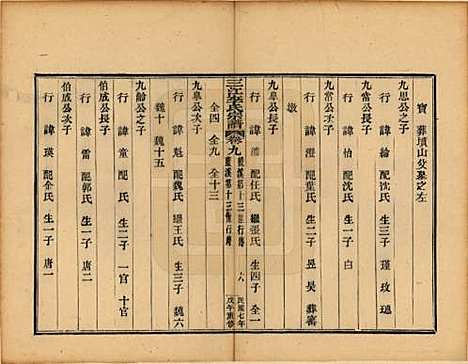 寶 葬墳山父塋之左
九思公之子
行 諱綸 配沈氏 生三子 瑾 玫 璁
九當公長子
行 諱怡 配沈氏 生一子 白
九當公次子
行 諱澄 配葉氏 生三子 昱 昊 葬窰
墩
九皋公長子
行 諱 配任氏 繼張氏 生四子 全一
全四 全九 全十三
三江李氏宗譜 卷九 六 民國七年戊午重修
九皋公次子
行 諱魁 配魏氏 繼王氏 生三子 魏六
魏十 魏十五
九齡公之子
行 諱童 配二氏 生二子 一官 十官
伯成公長子
行 諱雷 配郭氏 生一子 唐二
伯成公次子
行 諱瑛 配余氏 生一子 唐一